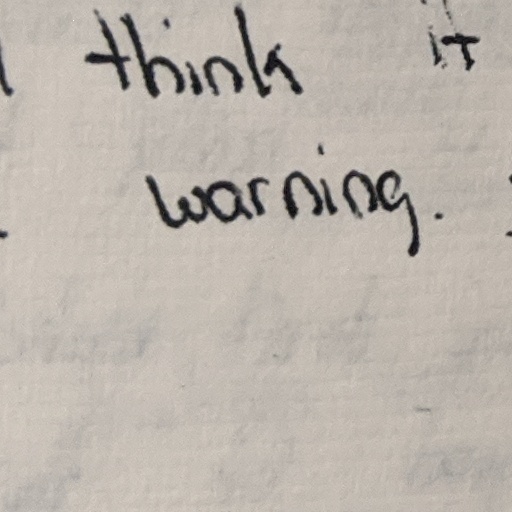 think it
warning.